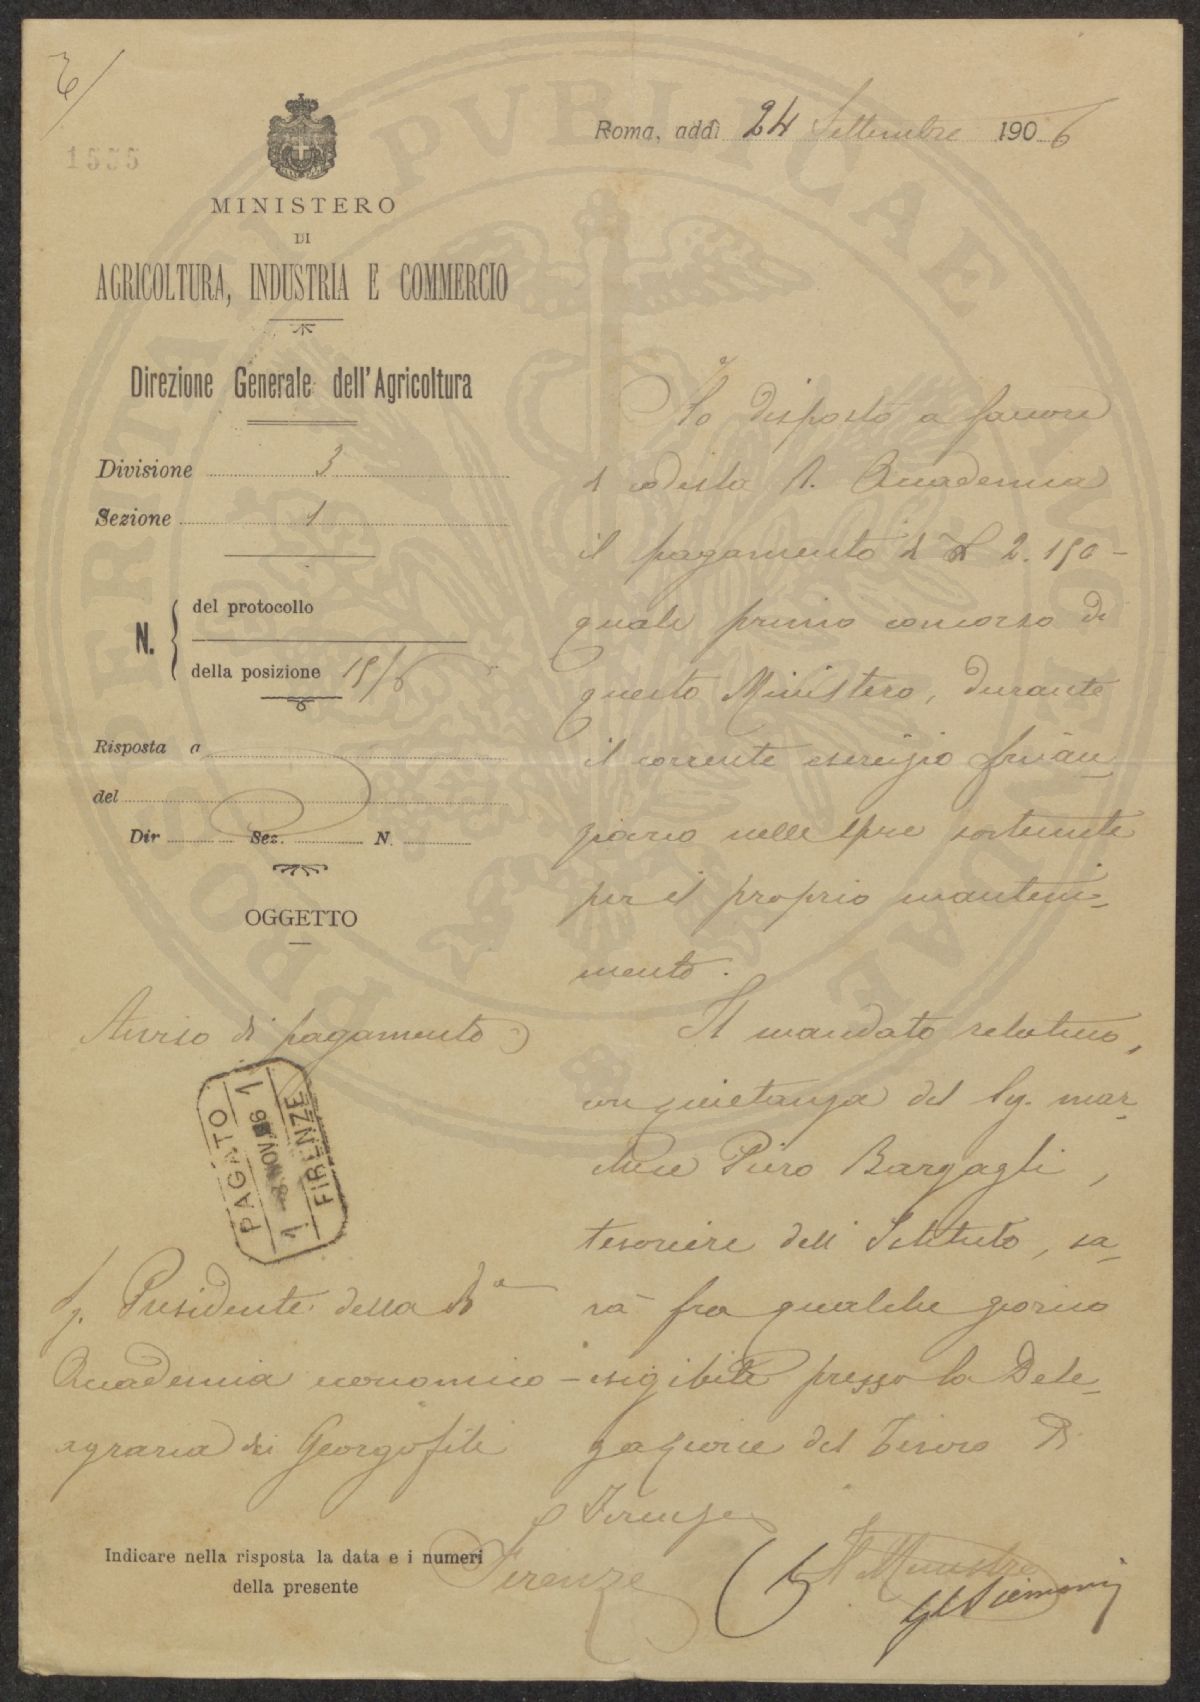 1555
Roma, addì 24 Settembre 1906
MINISTERO
DI
AGRICOLTURA, INDUSTRIA E COMMERCIO
Direzione Generale dell'Agricoltura
Divisione 3
Sezione 1
N.
del protocollo
della posizione 15/6
Risposta a
del
Dir Sez. N.
OGGETTO
Avviso di pagamento
PAGATO
1 8 NOV. 06 1
FIRENZE
Presidente della R.a
Accademia economico-
agraria dei Georgofili
Firenze
Indicare nella risposta la data e i numeri
della presente
Ho disposto a favore
di codesta R. Accademia
il pagamento di £ 2.150-
quale primo concorso di
questo Ministero, durante
il corrente esercizio finan-
ziario nelle spese sostenute
per il proprio manteni-
mento.
Il mandato relativo,
con quietanza del Sig. mar-
chese Piero Bargagli,
tesoriere dell'Istituto, sa-
rà fra qualche giorno
esigibile presso la Dele-
gazione del Tesoro di
Firenze
Il Ministro
PROSPERITATI PVBLICAE AVGENDAE